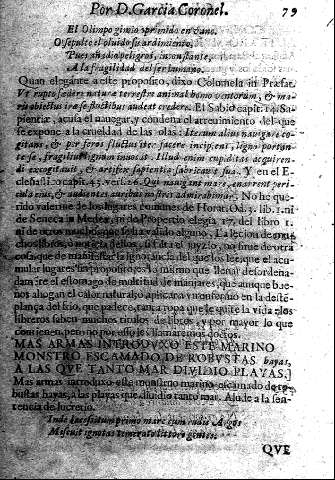 Por D. Garcia Coronel. 79
El Olimpo gimio oprimido en vano.
O sepulte el oluido su ardimiento,
Pues añadio peligros, inconstante,
A la fragilidad del ser humano.
Quan elegante a este proposito, dixo Columela in Præfat.
Vt rupto fœdere naturæ terrestre animal homo ventorum, & ma-
ris obiectus iræ se fluctibus audeat credere. El Sabio capit. 14. Sa-
pientiæ, acusa el nauegar, y condena el atreuimiento del que
se expone a la crueldad de las olas: Iterum alius nauigare co-
gitans, & per feros fluctus iter facere incipiens, ligno portan-
te se, fragilius lignum inuocat. Illud enim cupiditas acquiren-
di excogitauit, & artifex sapientia fabricauit sua. Y en el E-
clesiastico capit. 43. versi. 26. Qui nauigant mare, enarrent peri-
cula eius, & audientes auribus nostris admirabimur. No he que-
rido valerme de los lugares comunes de Horat. Od. 3. lib. 1. ni
de Seneca in Medea, ni de Propertio elegia 17. del libro 1.
ni de otros muchos que se ha valido alguno. La lecion de mu-
chos libros, o noticia dellos, si falta el juyzio, no sirue de otra
cosa que de manifestar la ignorancia del que los lee, que el acu-
mular lugares sin proposito, es lo mismo que llenar desordena-
damente el estomago de multitud de manjares, que aunque bue-
nos ahogan el calor natural,
plança del frio, que padece, nunca ropa que le quite la vida: los
libreros saben muchos titulos de libros, y por mayor lo que
contienen, pero no por esso les llamaremos doctos.
MAS ARMAS INTRODVXO ESTE MARINO
MONSTRO ESCAMADO DE ROBVSTAS hayas,
A LAS QVE TANTO MAR DIVIDIO PLAYAS.]
Mas armas introduxo este monstruo marino escamado de ro-
bustas hayas, a las playas que diuidio tanto mar. Alude a la sen-
tencia de Lucrecio.
Argos
Miscuit ignotas temerato littore gentes.
QVE